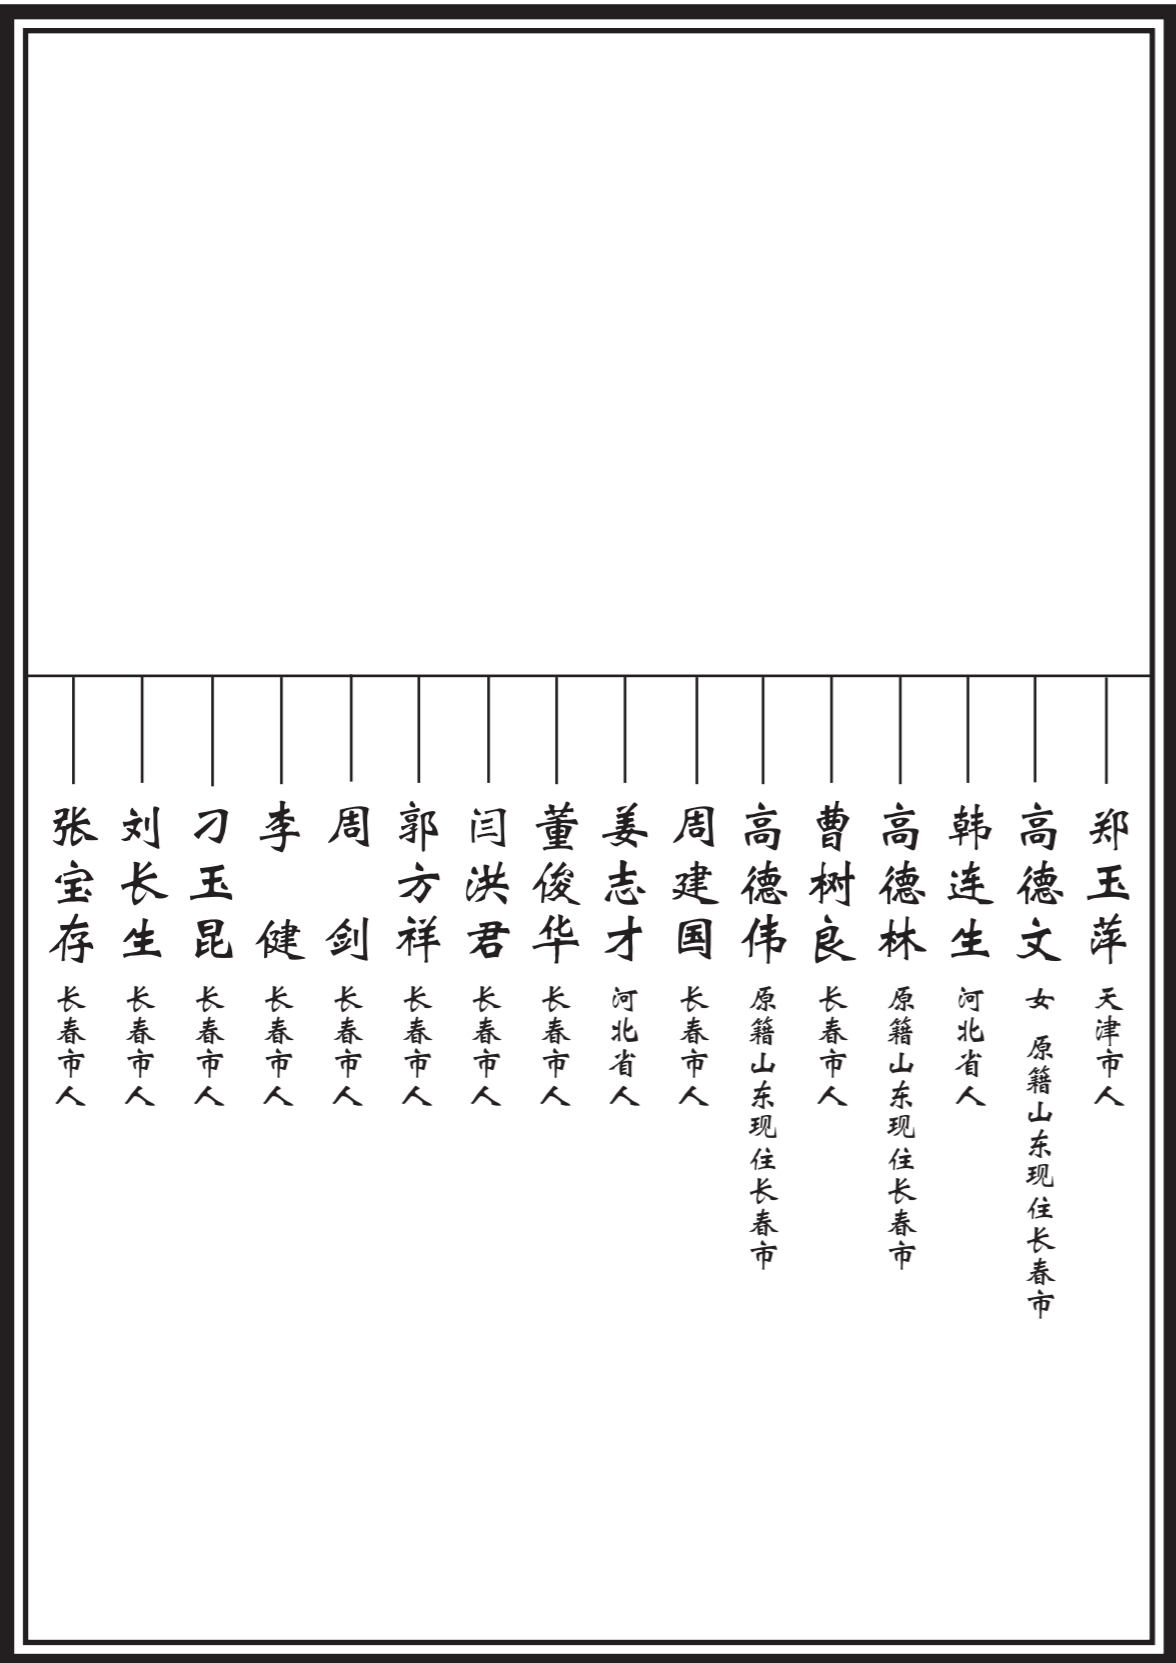 郑玉萍 天津市人
高德文 女 原籍山东现住长春市
韩连生 河北省人
高德林 原籍山东现住长春市
曹树良 长春市人
高德伟 原籍山东现住长春市
周建国 长春市人
姜志才 河北省人
董俊华 长春市人
闫洪君 长春市人
郭方祥 长春市人
周剑 长春市人
李健 长春市人
刁玉昆 长春市人
刘长生 长春市人
张宝存 长春市人